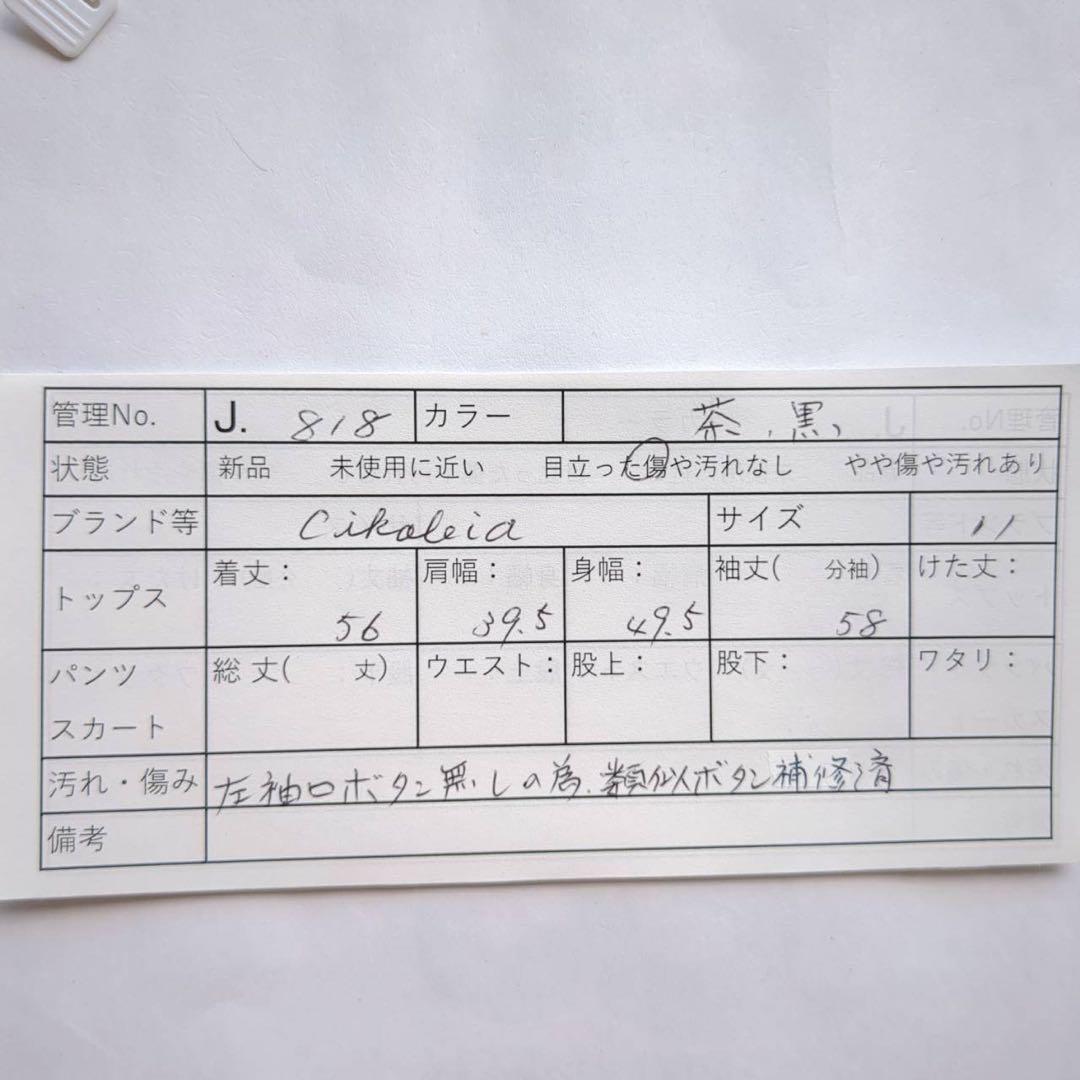 管理No. J. 818 カラー 茘、黒、
状態 新品 未使用に近い 目立った傷や汚れなし やや傷や汚れあり
ブランド等 Cikaleia サイズ 11
トップス 着丈： 56 肩幅： 39.5 身幅： 49.5 袖丈( 分袖) 58 けた丈：
パンツ 総 丈( 丈) ウエスト： 股上： 股下： ワタリ：
スカート
汚れ・傷み 左袖口ボタン無しの為、類似ボタン補修済
備考